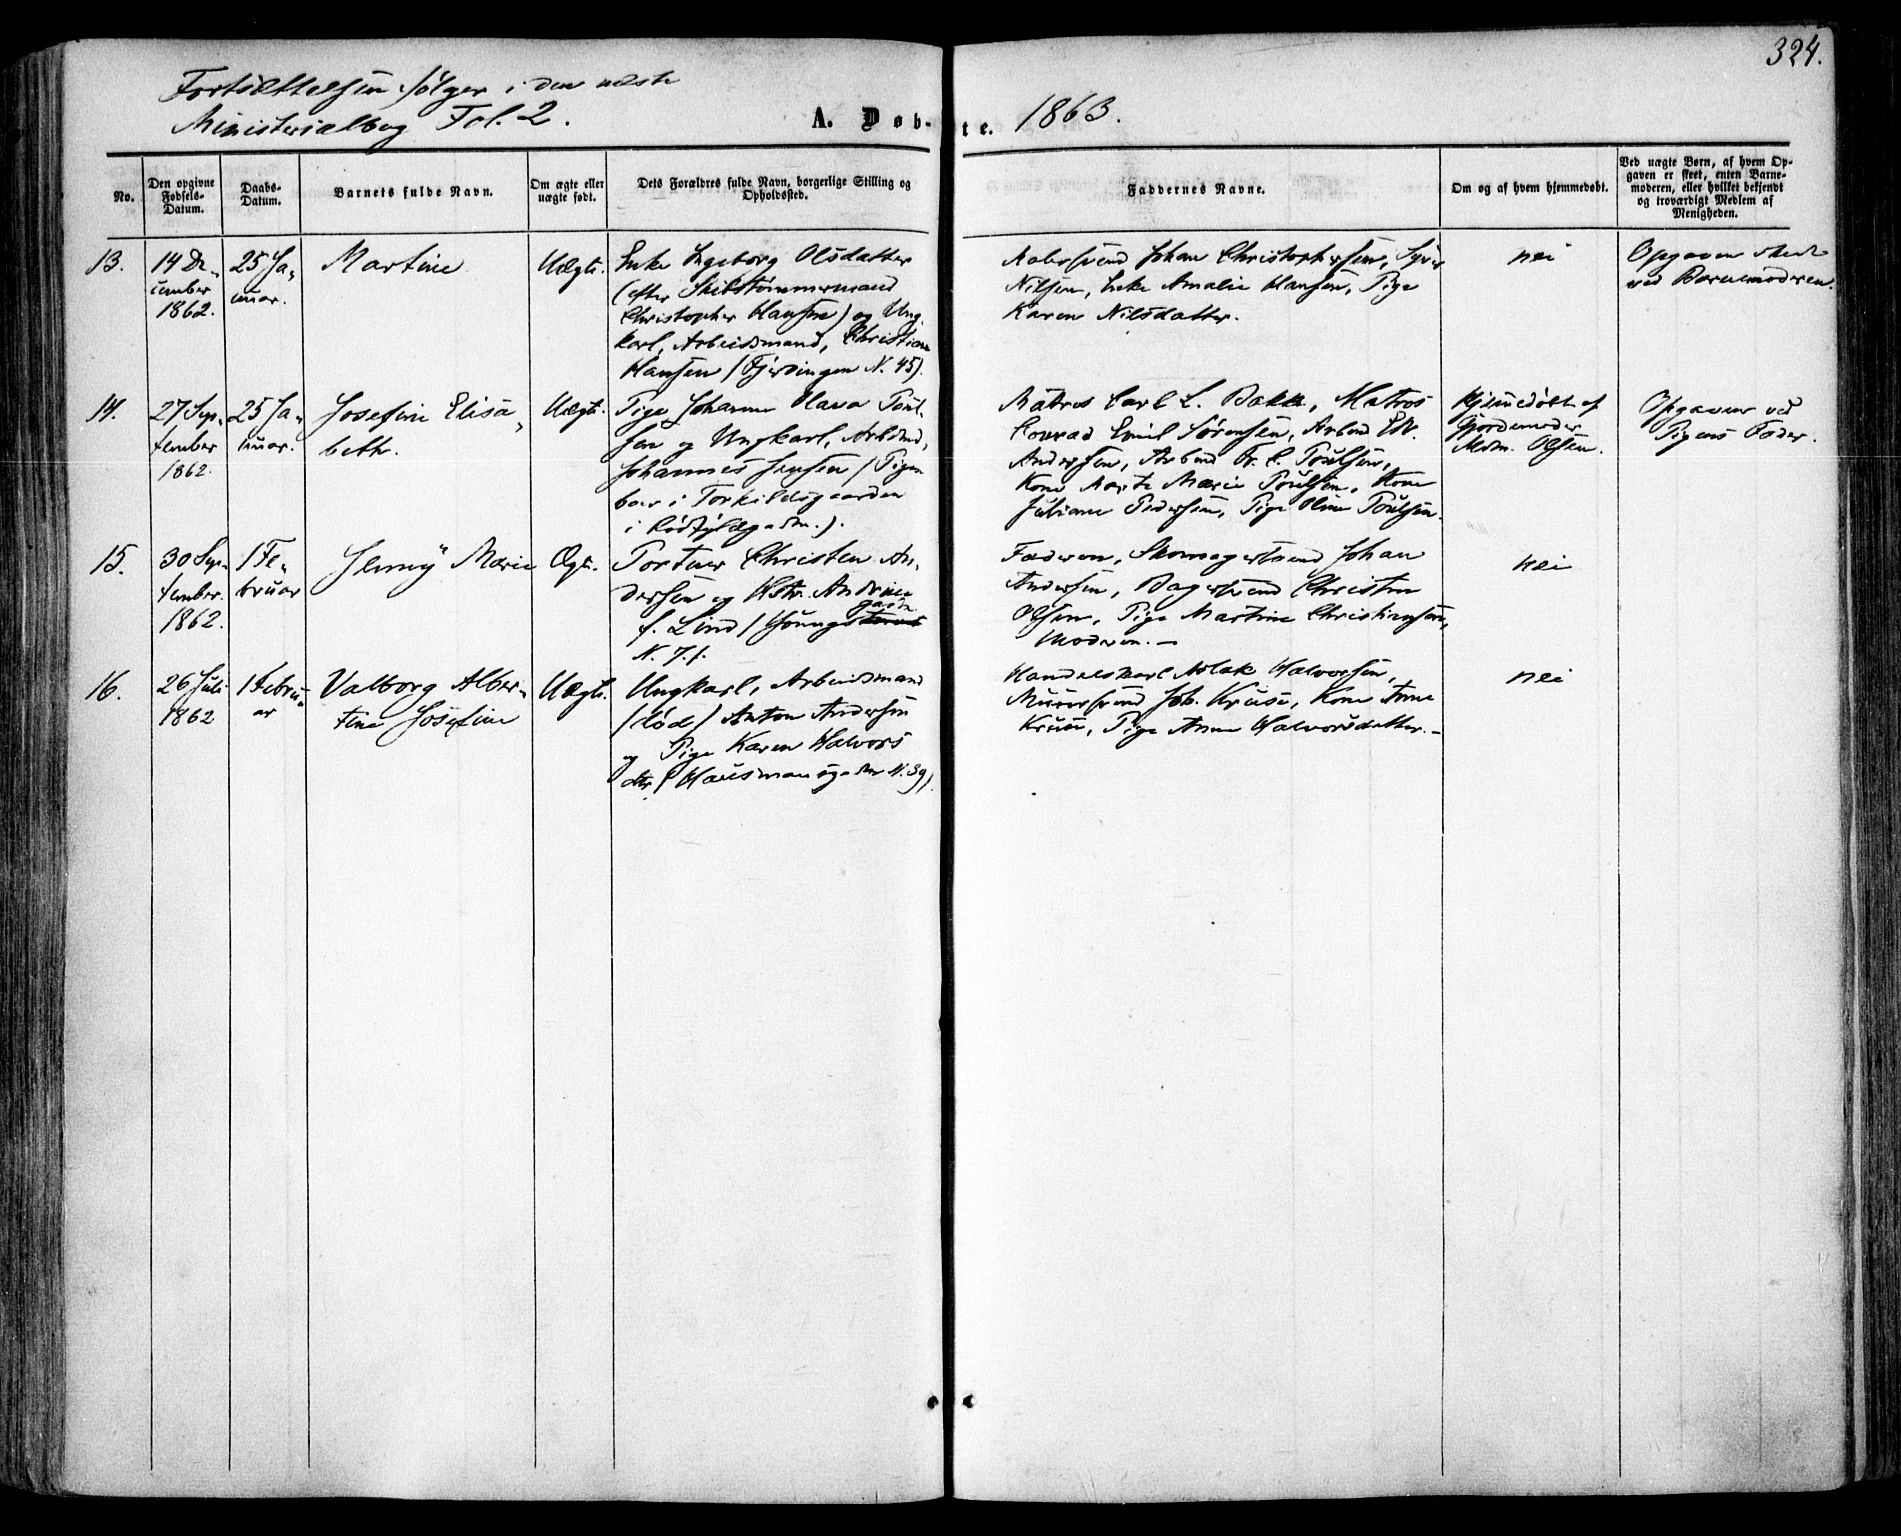 324.
Fortsættelsen følger i den næste
Ministerialbog Fol. 2.
A. Døb-
te. 1863.
No.
Den opgivne
Fødsels-
Datum.
Daabs-
Datum.
Barnets fulde Navn.
Om ægte eller
uægte født.
Dets Forældres fulde Navn, borgerlige Stilling og
Opholdssted.
Faddernes Navne.
Om og af hvem hjemmedøbt.
Ved uægte Børn, af hvem Op-
gaven er skeet, enten Barne-
moderen, eller hvilket bekjendt
og troværdigt Medlem af
Menigheden.
13.
14 De-
cember
1862.
25 Ja-
nuar.
Martine
Uægte.
Enke Ingeborg Olsdatter
(efter Skibstømmermand
Christopher Hansen) og Ung-
karl, Arbeidsmand, Christian
Hansen (Fjerdingen N. 45).
Johan Christophersen,
Nilsen, Enke Amalie Hansen, Pige
Karen Nilsdatter.
nei
Opgaven skeet
ved Barnemoderen.
14.
27 Sep-
tember
1862.
25 Ja-
nuar.
Josefine Elisa-
beth.
Uægte.
Pige Johanne Olava Poul-
sen og Ungkarl, Arbdmd,
Johannes Jensen (Pigen
boer i Torkildsgaarden
i Rødfyldgadn.).
Matros Carl L. Bakke, Matros
Conrad Emil Sørensen, Arbmd Edv.
Andersen, Arbmd Poulsen,
Kone Marte Marie Poulsen, Kone
Juliane Pedersen, Pige Oline Poulsen.
Hjemmedøbt af
Gjordemoder
Mdm. Olsen.
Opgaven ved
Pigens Fader.
15.
30 Sep-
tember.
1862.
1 Fe-
bruar
Jenny Marie
Ægte.
Portner Christen An-
dersen og Hstr. Andrine
gadn
f. Lind (Youngstorvet
N. 7.).
Faderen, Skomagersvend Johan
Andersen, Bagersvend Christen
Olsen, Pige Martine Christiansen,
Moderen. —
nei
16.
26 Juli
1862
1 Febru-
ar
Valborg Alber-
tine Josefine
Uægte.
Ungkarl, Arbeidsmand
(død) Anton Andersen
og Pige Karen Halvors
dtr. (Hausmansgaden N. 39).
Handelskarl Aslak Halvorsen,
Murersvend Joh. Kruse, Kone Anne
Kruse, Pige Anne Halvorsdatter. —
nei